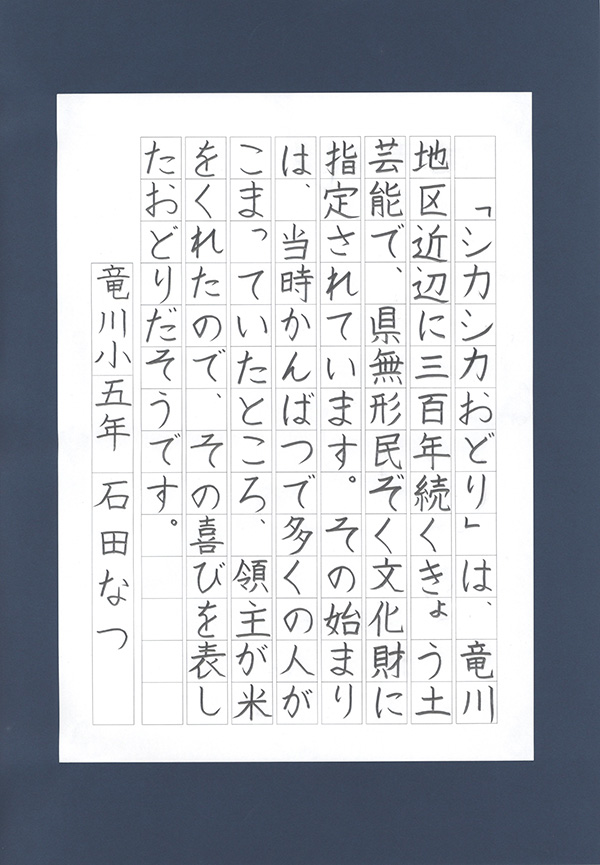 「シカシカおどり」は、竜川
地区近辺に三百年続くきょう土
芸能で、県無形民ぞく文化財に
指定されています。その始まり
は、当時かんばつで多くの人が
こまっていたところ、領主が米
をくれたので、その喜びを表し
たおどりだそうです。
竜川小五年 石田なつ